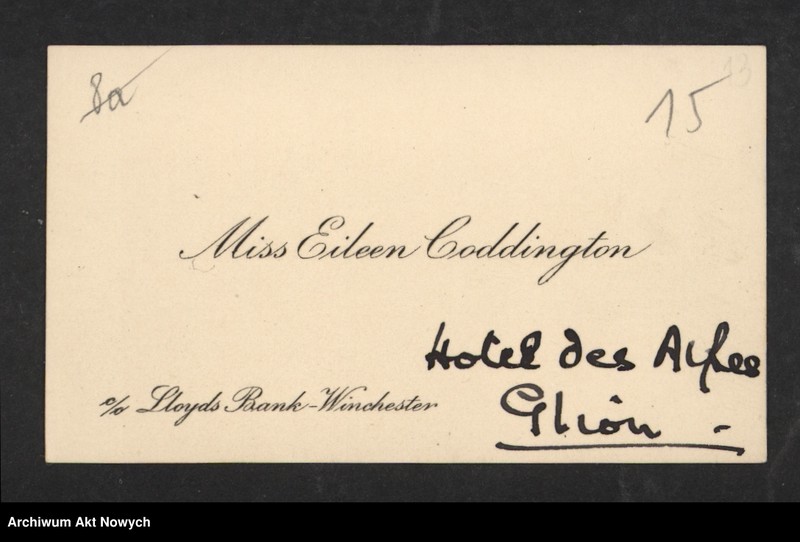 8a
15
13
Miss Eileen Coddington
Hotel des Alpes
c/o Lloyds Bank-Winchester
Glion -
Archiwum Akt Nowych